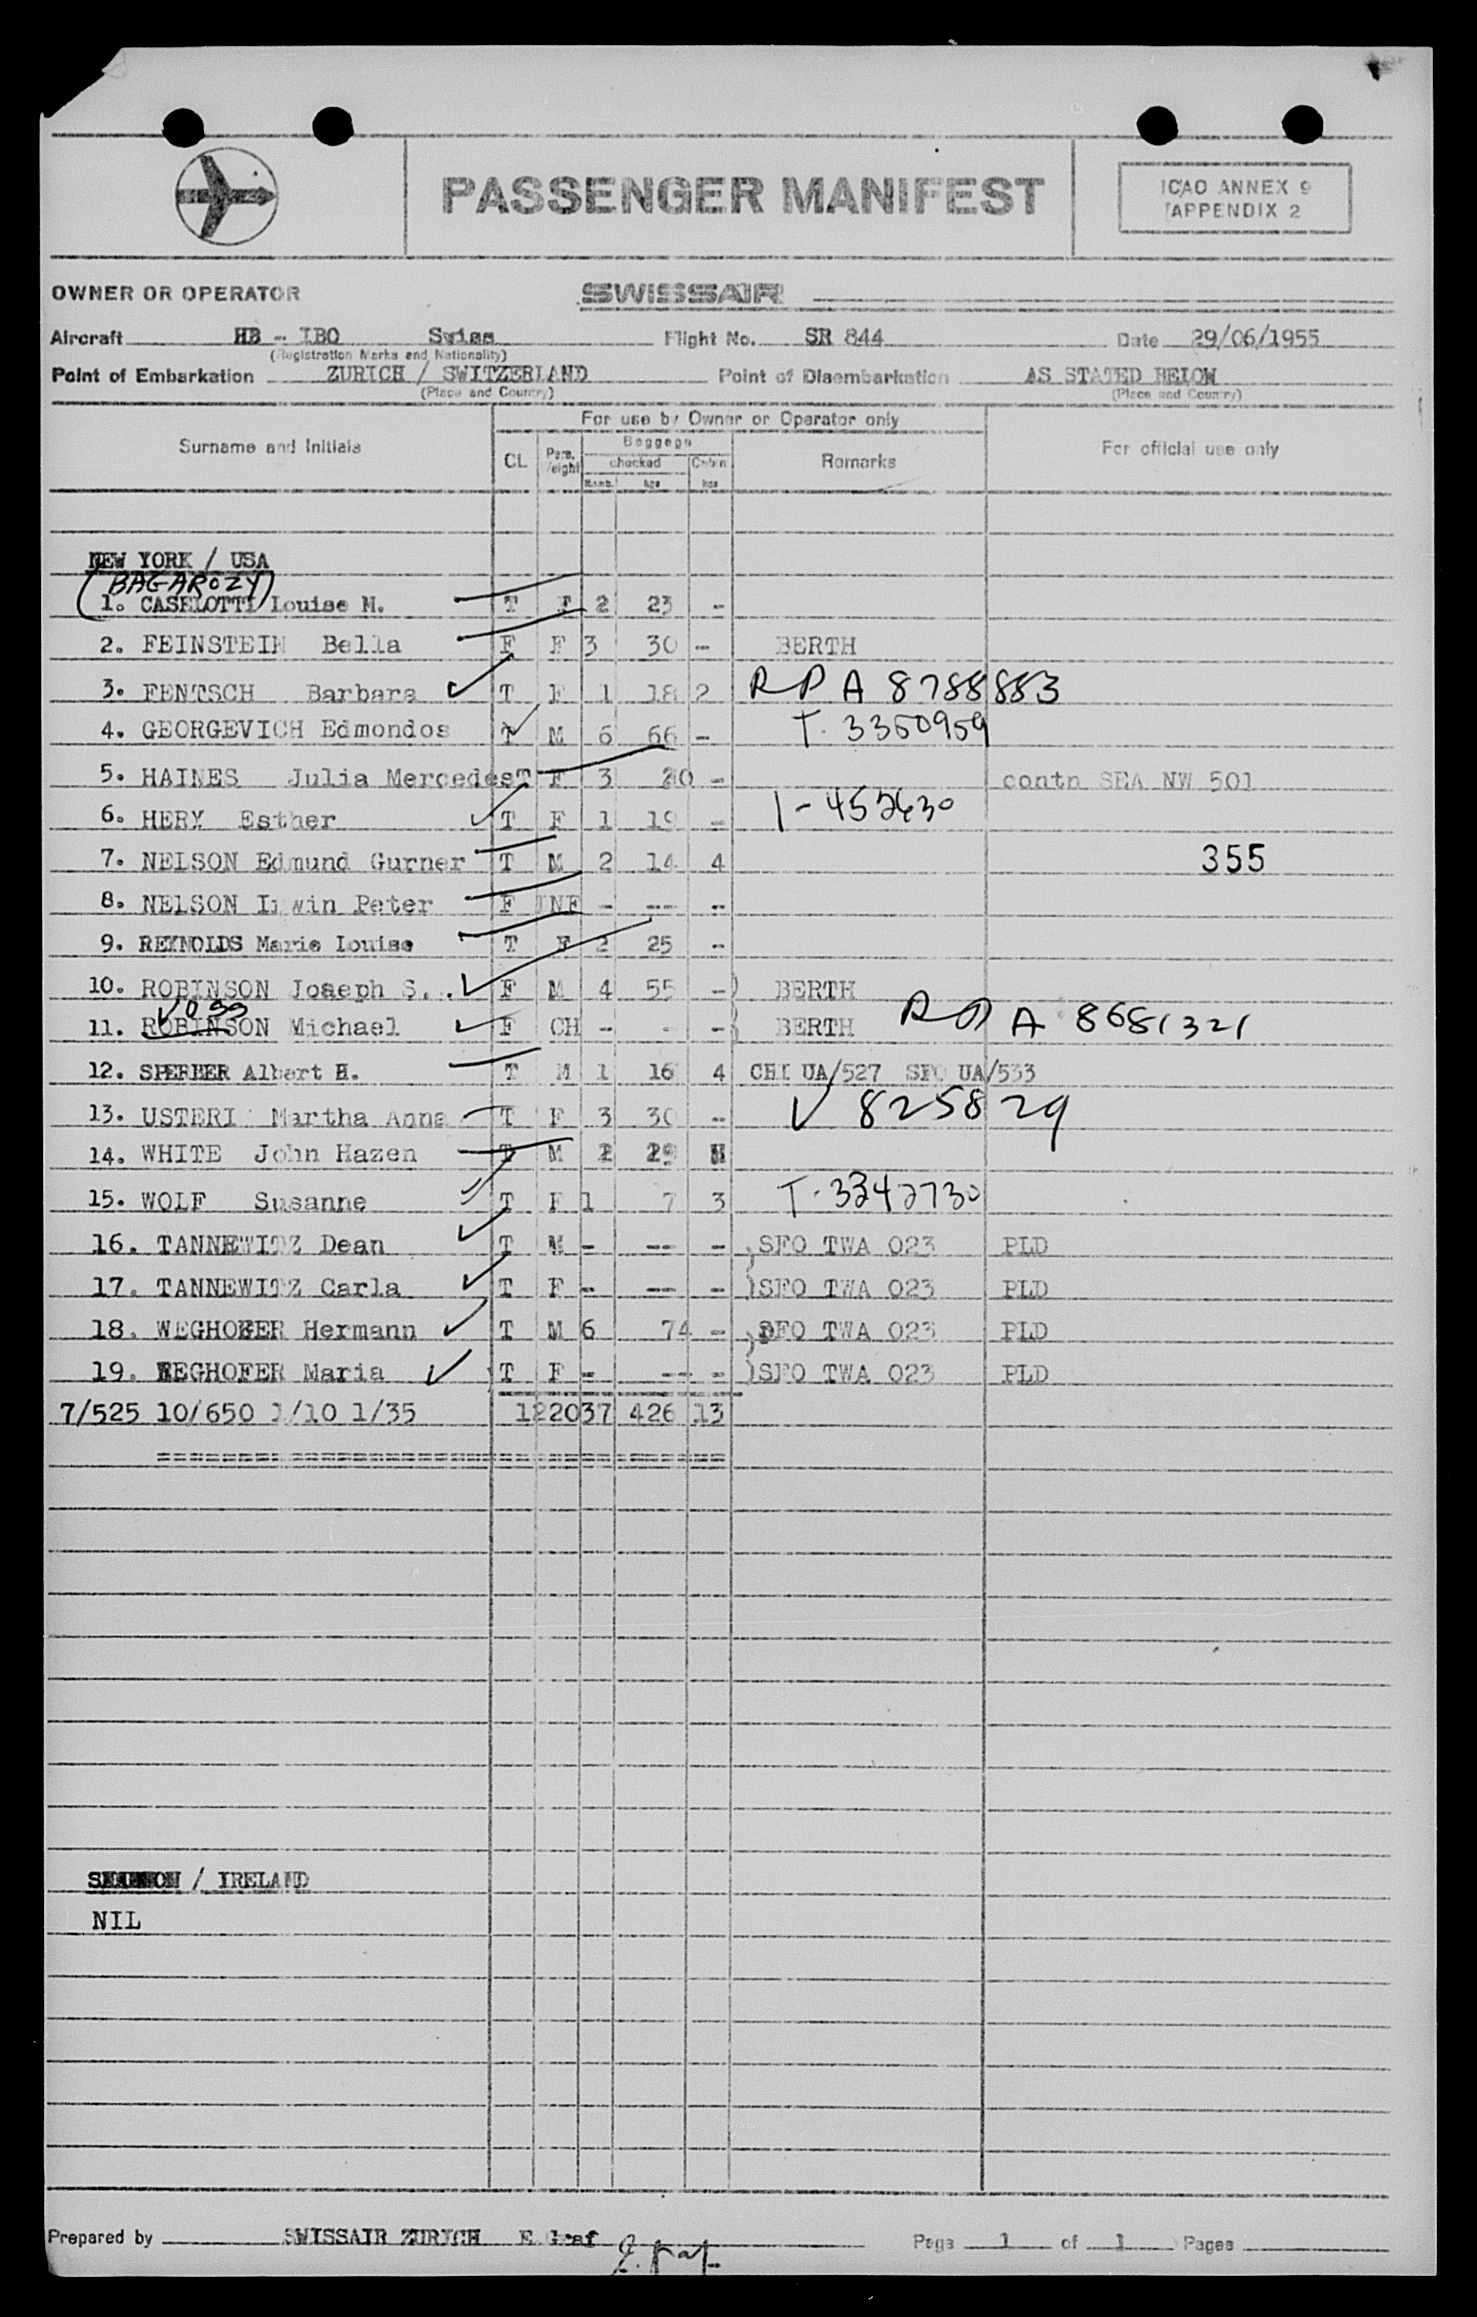 PASSENGER MANIFEST
ICAO ANNEX 9
APPENDIX 2
OWNER OR OPERATOR SWISSAIR
Aircraft HB - IBO Swiss Flight No. SR 844 Date 29/06/1955
(Registration Marks and Nationality)
Point of Embarkation ZURICH / SWITZERLAND Point of Disembarkation AS STATED BELOW
(Place and Country) (Place and Country)
For use by Owner or Operator only
Surname and Initials CL Pers. Weight Baggage checked Numb. kgs Cabin kgs Remarks For official use only
NEW YORK / USA
(BAGAROZY)
1. CASELOTTI Louise M. T F 2 23 -
2. FEINSTEIN Bella F F 3 30 - BERTH
3. FENTSCH Barbara T F 1 18 2 RPA 8788883
4. GEORGEVICH Edmondos T M 6 66 - T. 3350959
5. HAINES Julia Mercedes T F 3 20 - contn SEA NW 501
6. HERY Esther T F 1 19 - 1-452630
7. NELSON Edmund Gurner T M 2 14 4 355
8. NELSON Irwin Peter F INF - --- --
9. REYNOLDS Marie Louise T F 2 25 -
10. ROBINSON Joseph S. F M 4 55 -) BERTH
VOSS
11. ROBINSON Michael F CH - - -) BERTH RPA A 8681321
12. SPERBER Albert H. T M 1 16 4 CHI UA/527 SFO UA/533
13. USTERI Martha Anna T F 3 30 - V 825829
14. WHITE John Hazen T M 2 29
15. WOLF Susanne T F 1 7 3 T. 3342730
16. TANNEWITZ Dean T M - --- - )SFO TWA 023 PLD
17. TANNEWITZ Carla T F - --- - )SFO TWA 023 PLD
18. WEGHOFER Hermann T M 6 74 - )SFO TWA 023 PLD
19. WEGHOFER Maria T F - --- - )SFO TWA 023 PLD
7/525 10/650 1/10 1/35 1220 37 426 13
======================================
SHANNON / IRELAND
NIL
Prepared by SWISSAIR ZURICH E Graf E. Graf Page 1 of 1 Pages